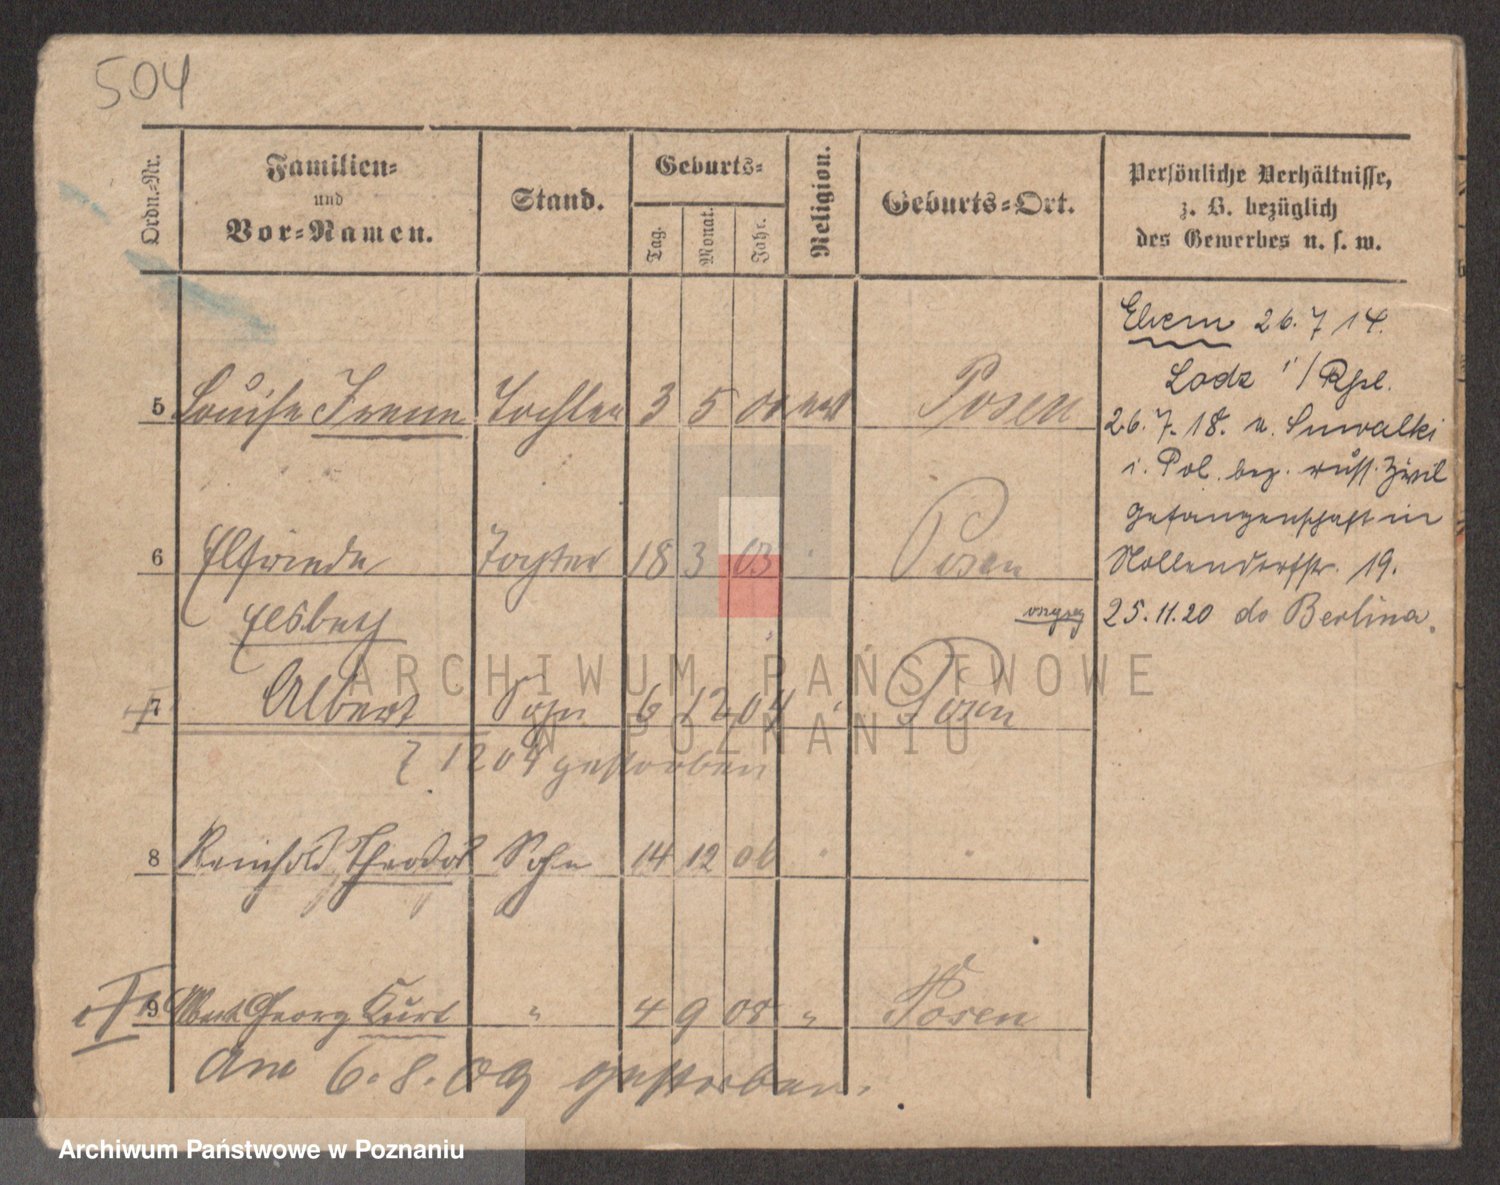 504
Ordn.-Nr.
Familien-
und
Vor-Namen.
Stand.
Geburts-
Tag.
Monat.
Jahr.
Religion.
Geburts-Ort.
Persönliche Verhältnisse,
z. B. bezüglich
des Gewerbes u. s. w.
5 Louise Irene Tochter 3 5 00 Posen
6 Elfriede Tochter 18 3 03 " Posen
Elsbeth
7 Albert Sohn 6 12 04 " Posen
7 12 04 gestorben
8 Reinhold Theodor Sohn 14 12 06 " "
9 Georg Kurt " 4 9 08 " Posen
Am 6.8.09 gestorben.
Eltern 26. 7 14.
Lodz i/
26. 7. 18. a. Suwalki
i. Pol. bez. russ. Zivil
gefangenschaft in
Nollendorfstr. 19.
25. 11. 20 do Berlina.
ARCHIWUM PAŃSTWOWE
W POZNANIU
Archiwum Państwowe w Poznaniu